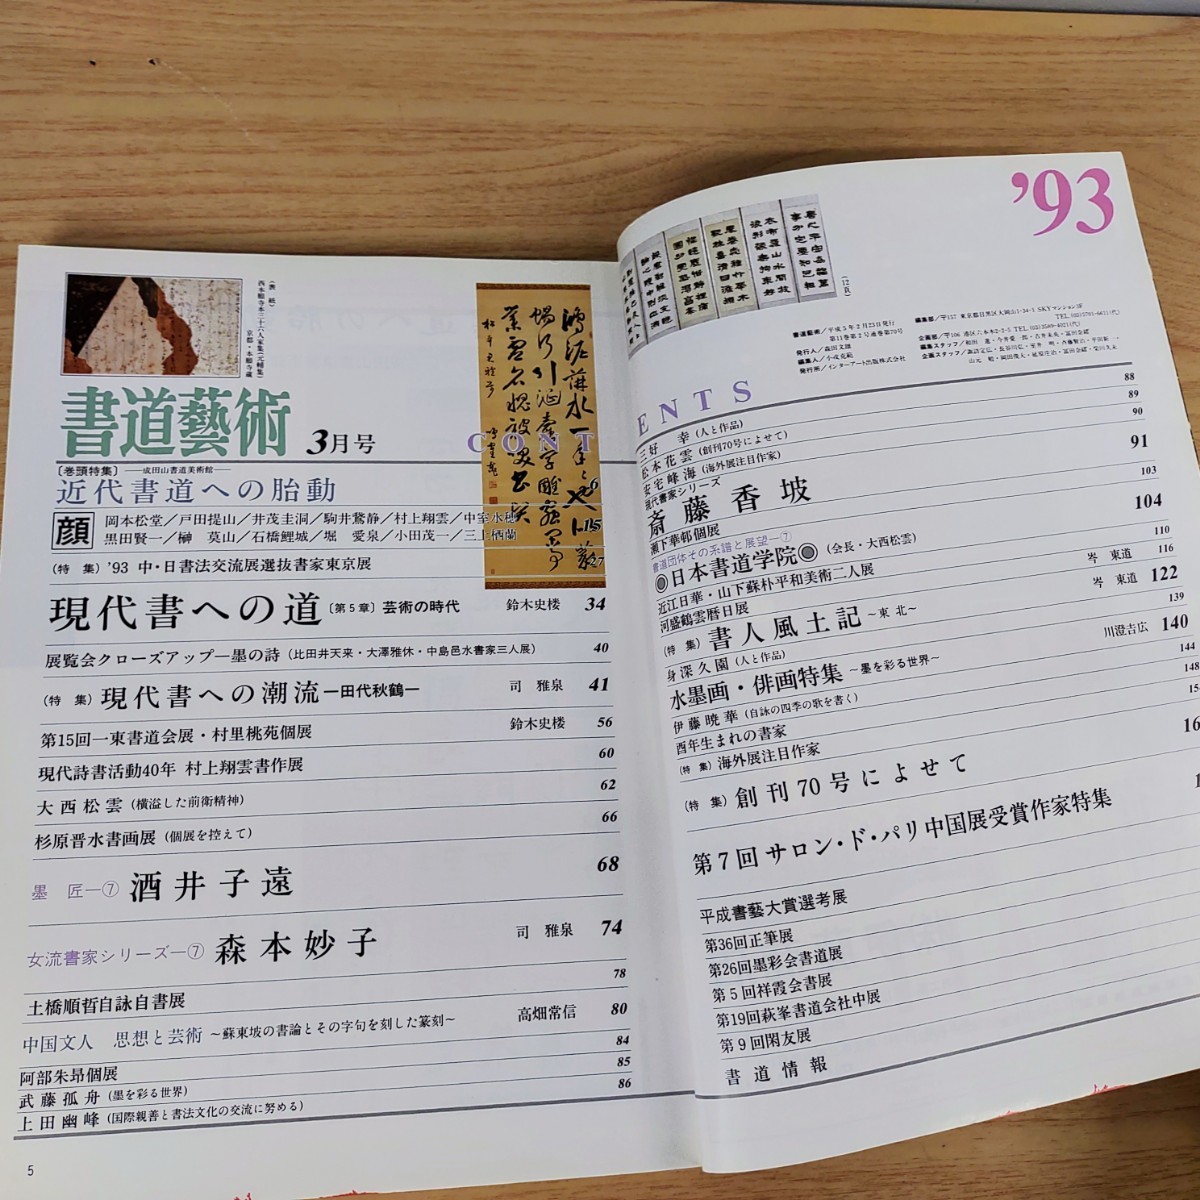 (表紙)
西本願寺本三十六人家集(元輔集)
京都・本願寺蔵
書道藝術 3月号
CONT
〔巻頭特集〕―成田山書道美術館―
近代書道への胎動 6
顔
岡本松堂/戸田提山/井茂圭洞/駒井鵞静/村上翔雲/中室水穂
黒田賢一/榊 莫山/石橋鯉城/堀 愛泉/小田茂一/三上栖蘭 15
(特 集) '93 中・日書法交流展選抜書家東京展 27
現代書への道〔第5章〕芸術の時代 鈴木史楼 34
展覧会クローズアップ―墨の詩(比田井天来・大澤雅休・中島邑水書家三人展) 40
(特 集) 現代書への潮流―田代秋鶴― 司 雅泉 41
第15回一東書道会展・村里桃苑個展 鈴木史楼 56
現代詩書活動40年 村上翔雲書作展 60
大西松雲(横溢した前衛精神) 62
杉原晋水書画展(個展を控えて) 66
墨 匠―⑦ 酒井子遠 68
女流書家シリーズ―⑦ 森本妙子 司 雅泉 74
土橋順哲自詠自書展 78
中国文人 思想と芸術 ~蘇東坡の書論とその字句を刻した篆刻~ 高畑常信 80
阿部朱昻個展 84
武藤孤舟(墨を彩る世界) 85
上田幽峰(国際親善と書法文化の交流に努める) 86
5
'93
(12頁)
書道藝術/平成5年2月23日発行
第11巻第2号通巻第70号
発行人/森田文雄
編集人/小攻克範
発行所/インターアート出版株式会社
ENTS
三好 幸(人と作品) 88
松本花雲(創刊70号によせて) 89
安宅峰海(海外展注目作家) 90
現代書家シリーズ
斎藤香坡 91
瀬下華邨個展 103
書道団体その系譜と展望―⑦
◎日本書道学院◎(会長・大西松雲) 104
近江日華・山下蘇朴平和美術二人展 110
河盛鶴雲暦日展 岑 東道 116
(特 集) 書人風土記 ~東 北~ 岑 東道 122
身深久園(人と作品) 139
水墨画・俳画特集 ~墨を彩る世界~ 川澄吉広 140
伊藤暁華(自詠の四季の歌を書く) 144
酉年生まれの書家 148
(特 集) 海外展注目作家 15
(特 集) 創刊70号によせて 16
第7回サロン・ド・パリ中国展受賞作家特集 1
平成書藝大賞選考展
第36回正筆展
第26回墨彩会書道展
第5回祥霞会書展
第19回萩峯書道会社中展
第9回閑友展
書道情報